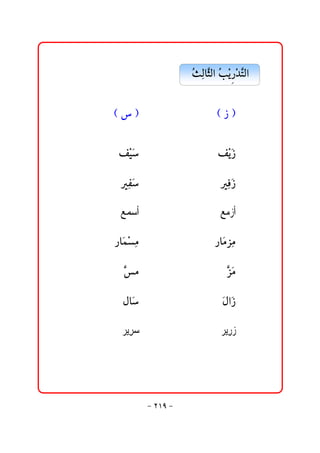 التَّدْرِيْبُ الثَّالِثُ
( ز ) ( س )
زَيْف سَيْف
زَفِير سَفِير
أزمع أسمع
مِزمَار مِسْمَار
مَزَّ مسَّ
زَالَ سَال
زرير سرير
- ٢١٩ -